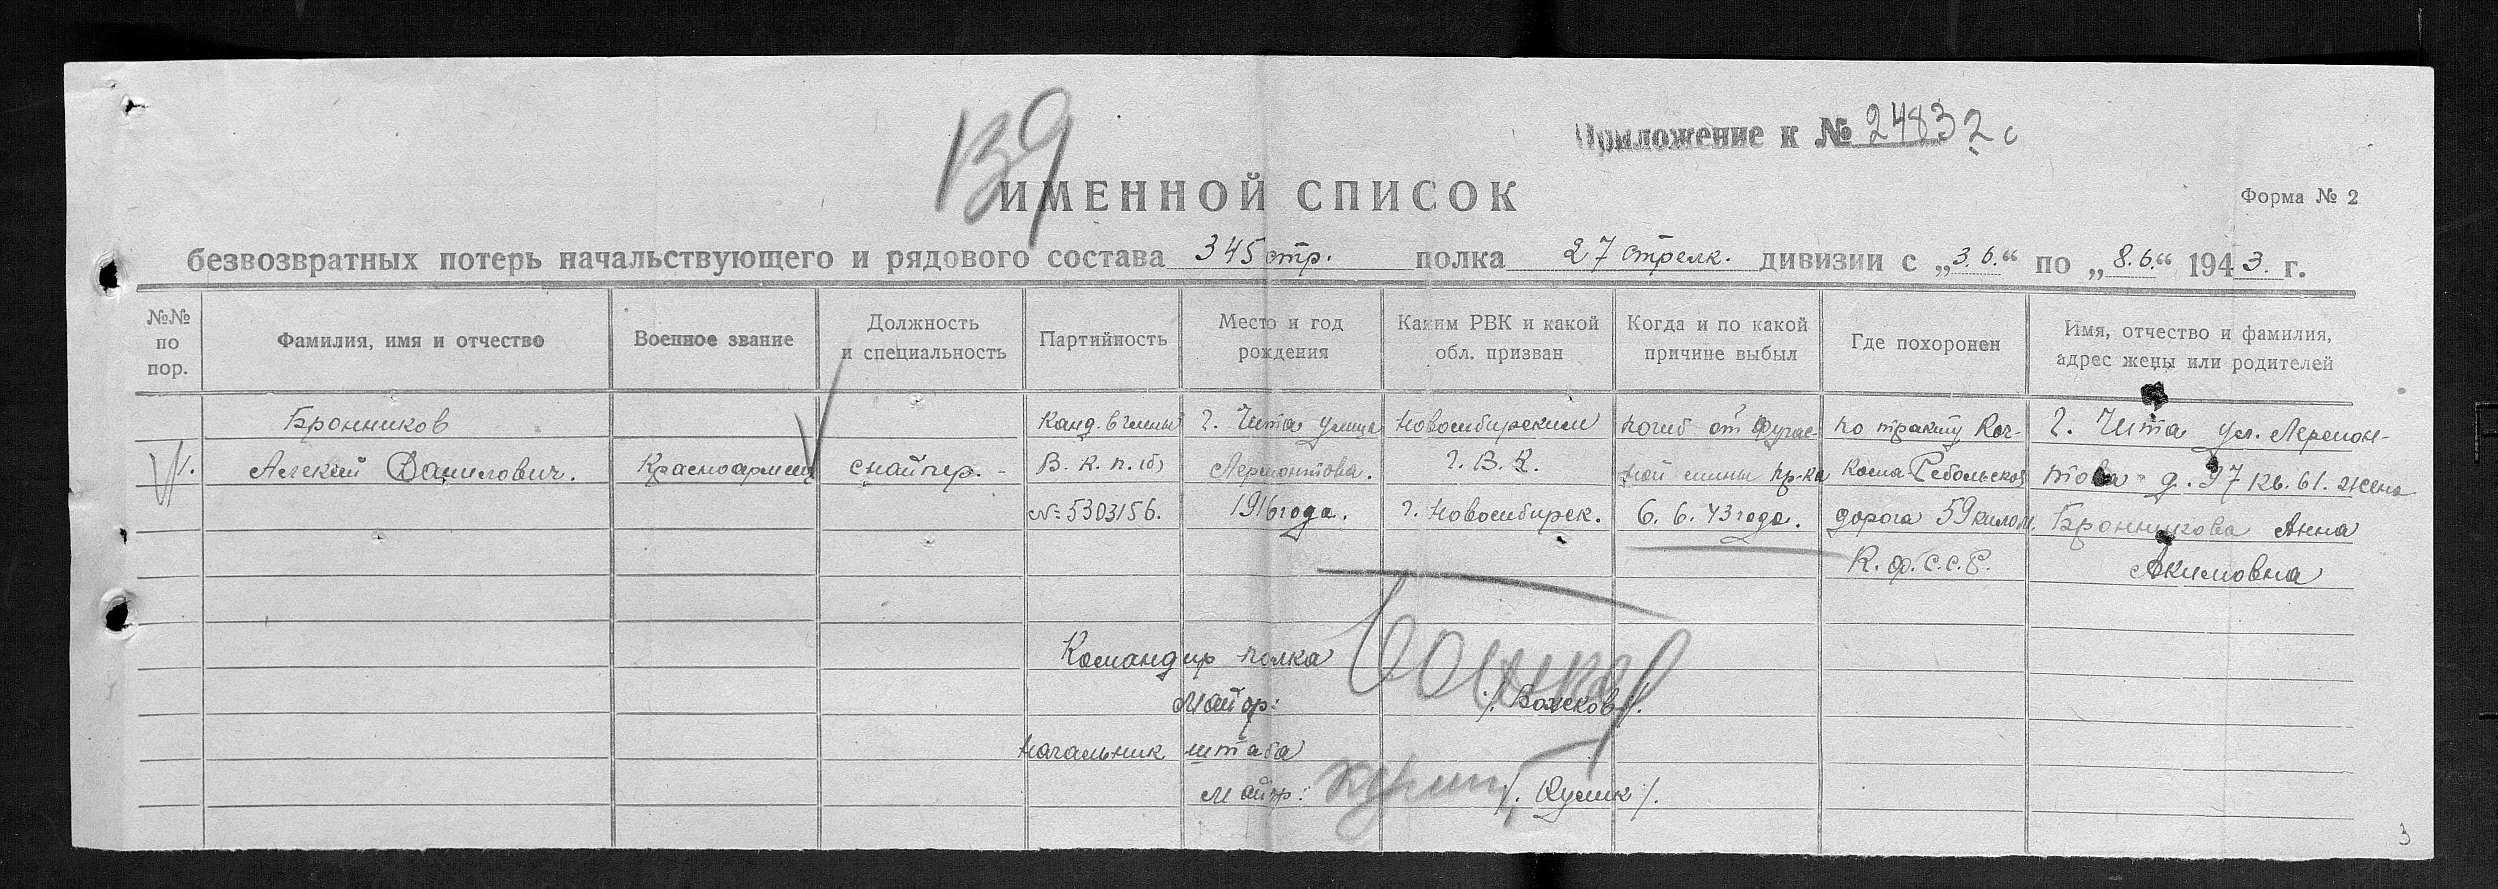 139
Приложение к № 24832с
ИМЕННОЙ СПИСОК
Форма № 2
безвозвратных потерь начальствующего и рядового состава 345 стр. полка 27 стрелк. дивизии с „3.6.“ по „8.6.“ 1943 г.
№№ по пор.
Фамилия, имя и отчество
Военное звание
Должность и специальность
Партийность
Место и год рождения
Каким РВК и какой обл. призван
Когда и по какой причине выбыл
Где похоронен
Имя, отчество и фамилия, адрес жены или родителей
1.
Бронников
Алексей Данилович.
Красноармеец
снайпер.
Канд. в члены
В. К. П. (б)
№ 5303156.
г. Чита улица
Лермонтова.
1916 года.
Новосибирским
Г. В. К.
г. Новосибирск.
погиб от фугас-
ной мины пр-ка
6. 6. 43 года.
по тракту Коч-
кома Ребольская
дорога 59 килом.
К. Ф. С. С. Р.
г. Чита ул. Лермон-
това д. 37 кв. 61. жена
Бронникова Анна
Акимовна
Командир полка
Майор: /. Божков /.
Начальник штаба
майор: /. Кулик /.
3